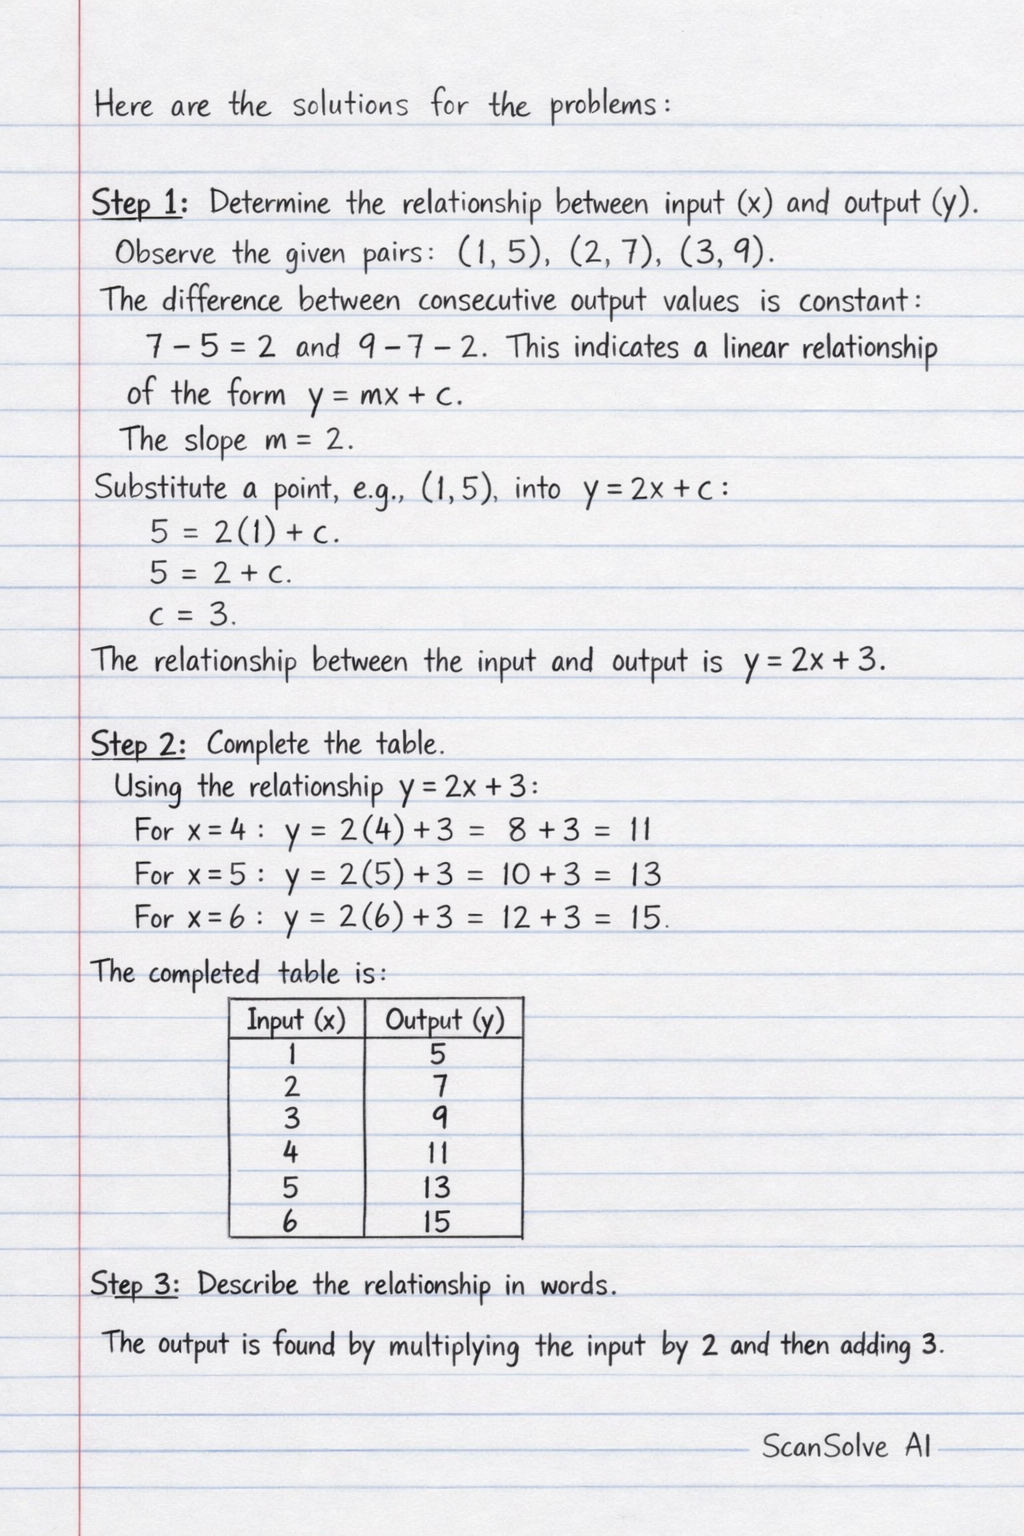 Here are the solutions for the problems:
Step 1: Determine the relationship between input (x) and output (y).
Observe the given pairs: (1, 5), (2, 7), (3, 9).
The difference between consecutive output values is constant:
7 – 5 = 2 and 9 – 7 – 2. This indicates a linear relationship
of the form y = mx + c.
The slope m = 2.
Substitute a point, e.g., (1, 5), into y = 2x + c:
5 = 2(1) + c.
5 = 2 + c.
c = 3.
The relationship between the input and output is y = 2x + 3.
Step 2: Complete the table.
Using the relationship y = 2x + 3:
For x = 4 : y = 2(4) + 3 = 8 + 3 = 11
For x = 5 : y = 2(5) + 3 = 10 + 3 = 13
For x = 6 : y = 2(6) + 3 = 12 + 3 = 15.
The completed table is:
Input (x) Output (y)
1 5
2 7
3 9
4 11
5 13
6 15
Step 3: Describe the relationship in words.
The output is found by multiplying the input by 2 and then adding 3.
ScanSolve AI